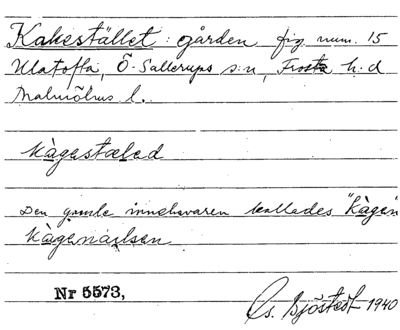 Kakestället: gården fig. num. 15
Ulatofta, Ö. Sallerups s:n, Frosta h:d
Malmöhus l.
kàgestæled
Den gamle innehavaren kallades "Kàgen"
Nr 5573,
Sjöstedt 1940